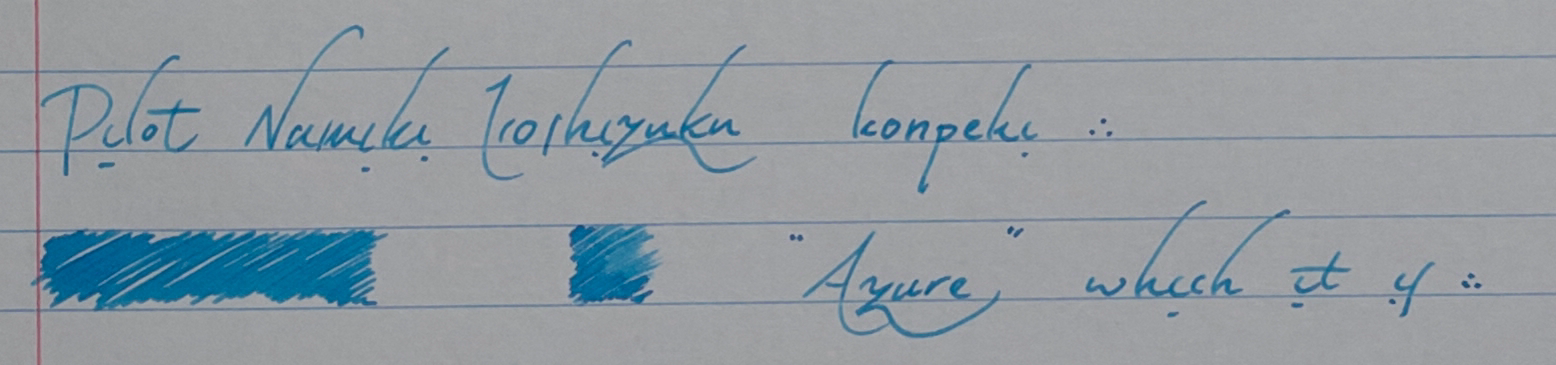 Pilot Namiki Iroshizuku konpeki ∴
"Azure," which it is ∴